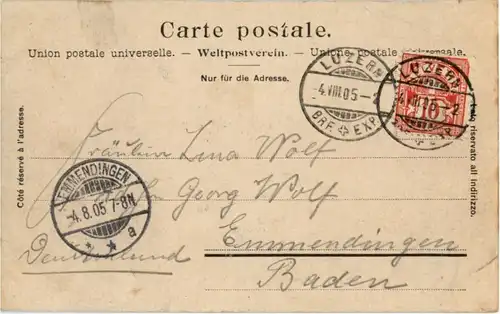 Carte postale.
Union postale universelle. — Weltpostverein. — Unione postale universale.
Nur für die Adresse.
Côté réservé à l'adresse.
Lato riservato all indirizzo.
LUZERN
4.VIII.05-2
BRF. EXP.
LUZERN
4.VIII.05-2
10
EMMENDINGEN
4.8.05 7-8N
* * a
Fräulein Lina Wolf
Georg Wolf
Emmendingen
Deutschland
Baden